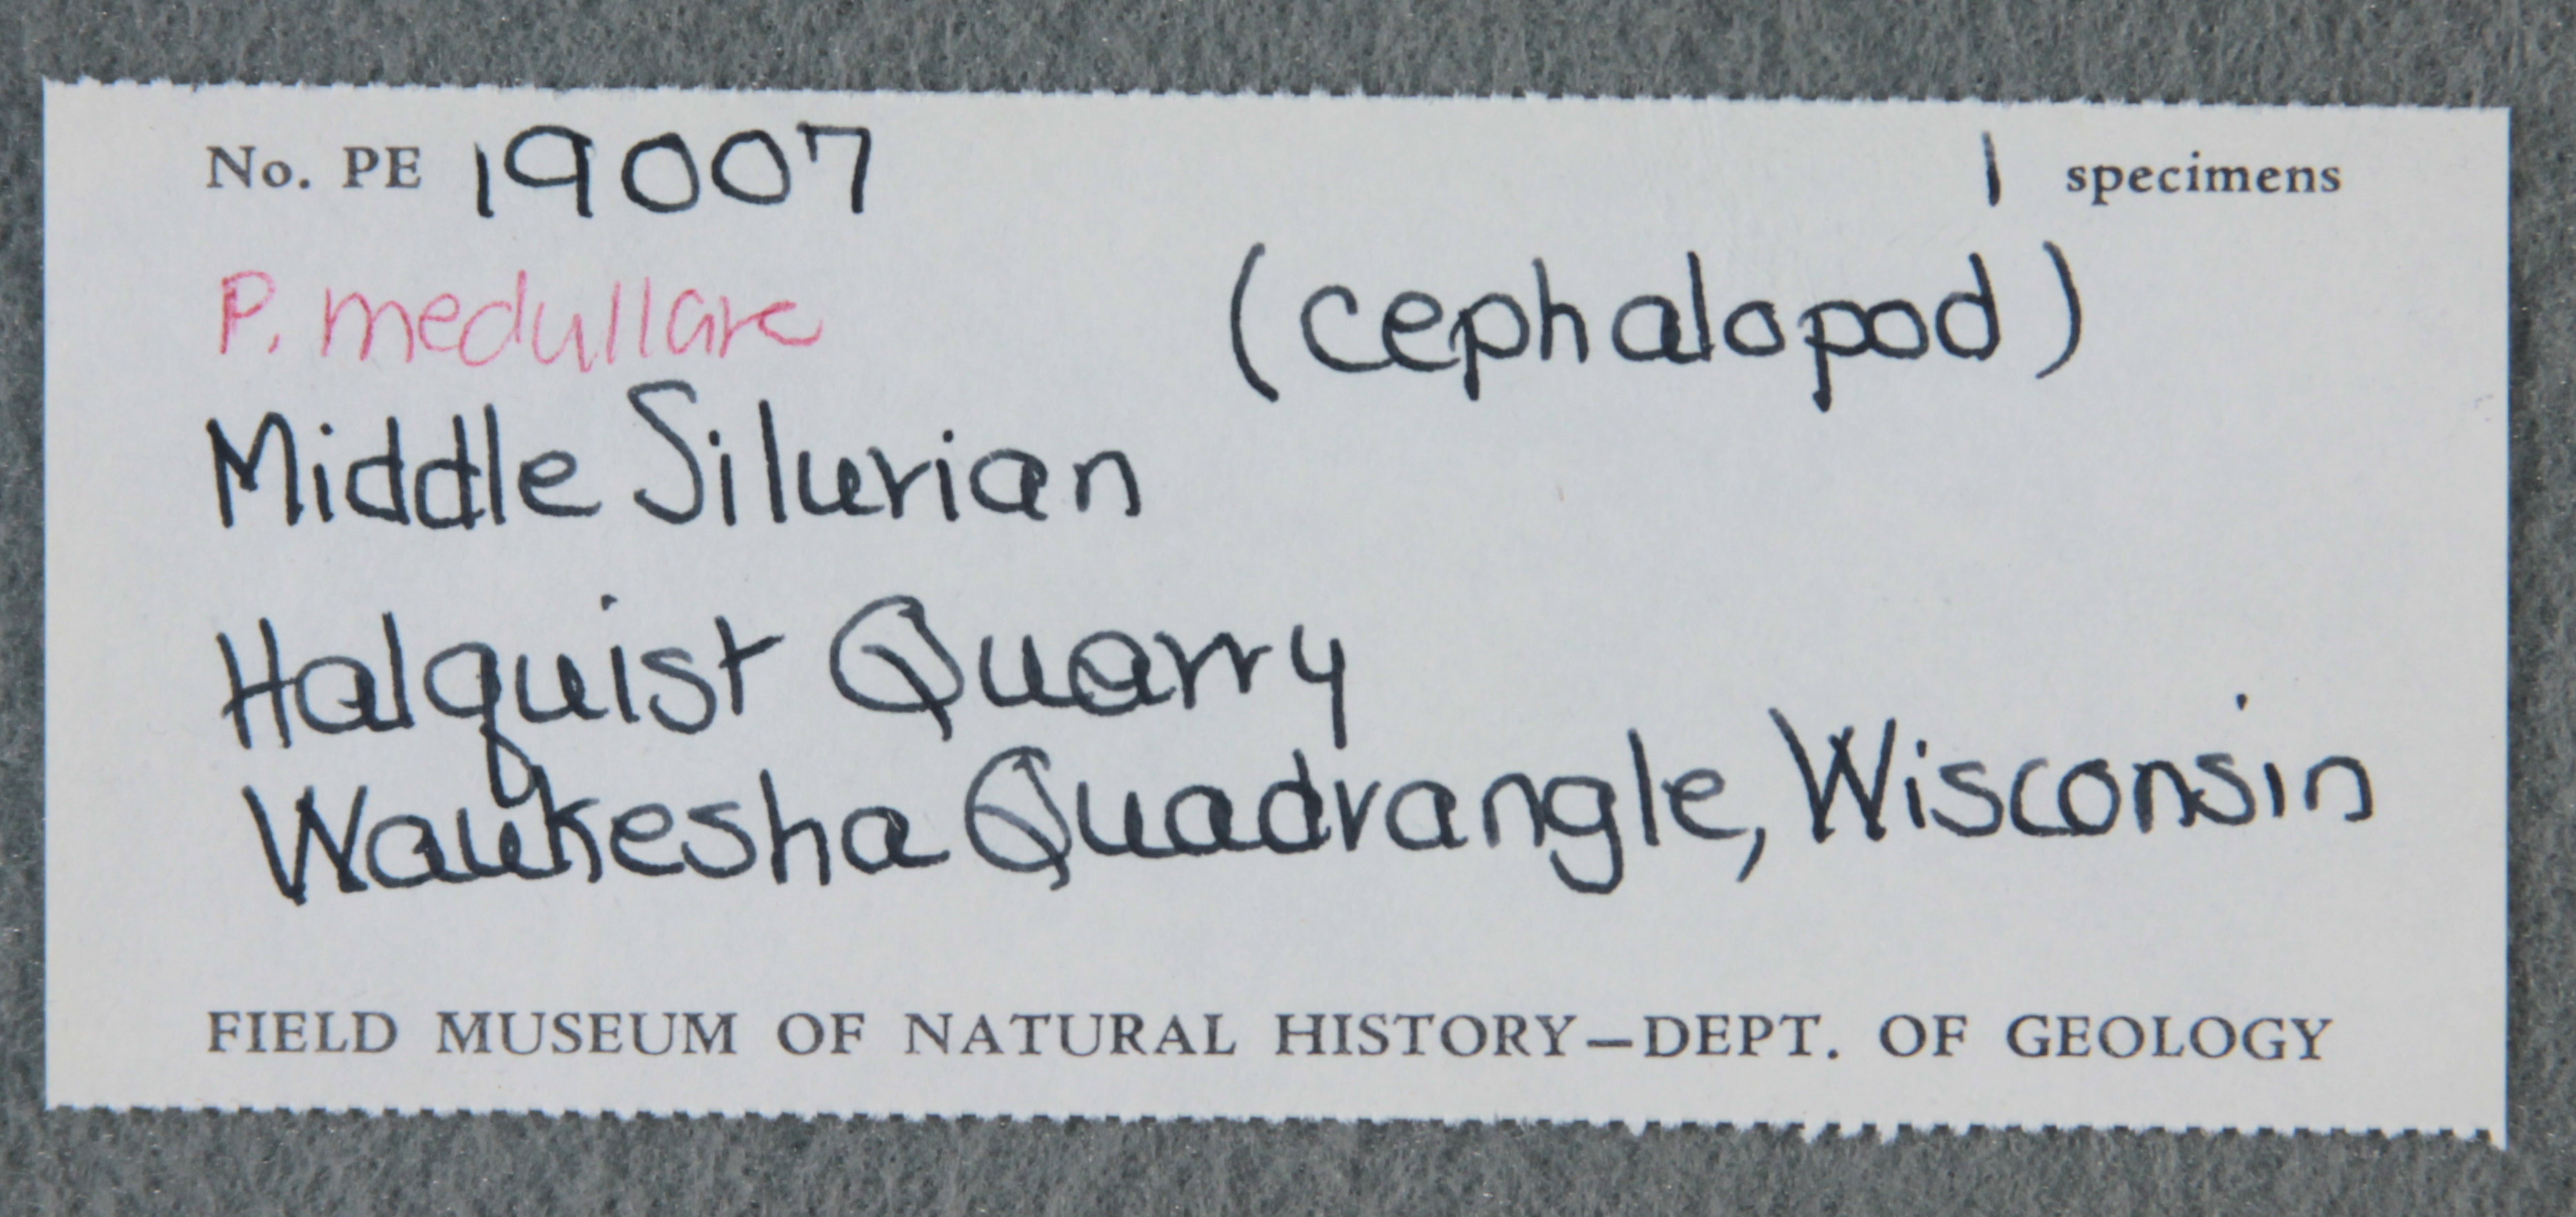 No. PE 19007 1 specimens
P. medullare (cephalopod)
Middle Silurian
Halquist Quarry
Waukesha Quadrangle, Wisconsin
FIELD MUSEUM OF NATURAL HISTORY—DEPT. OF GEOLOGY